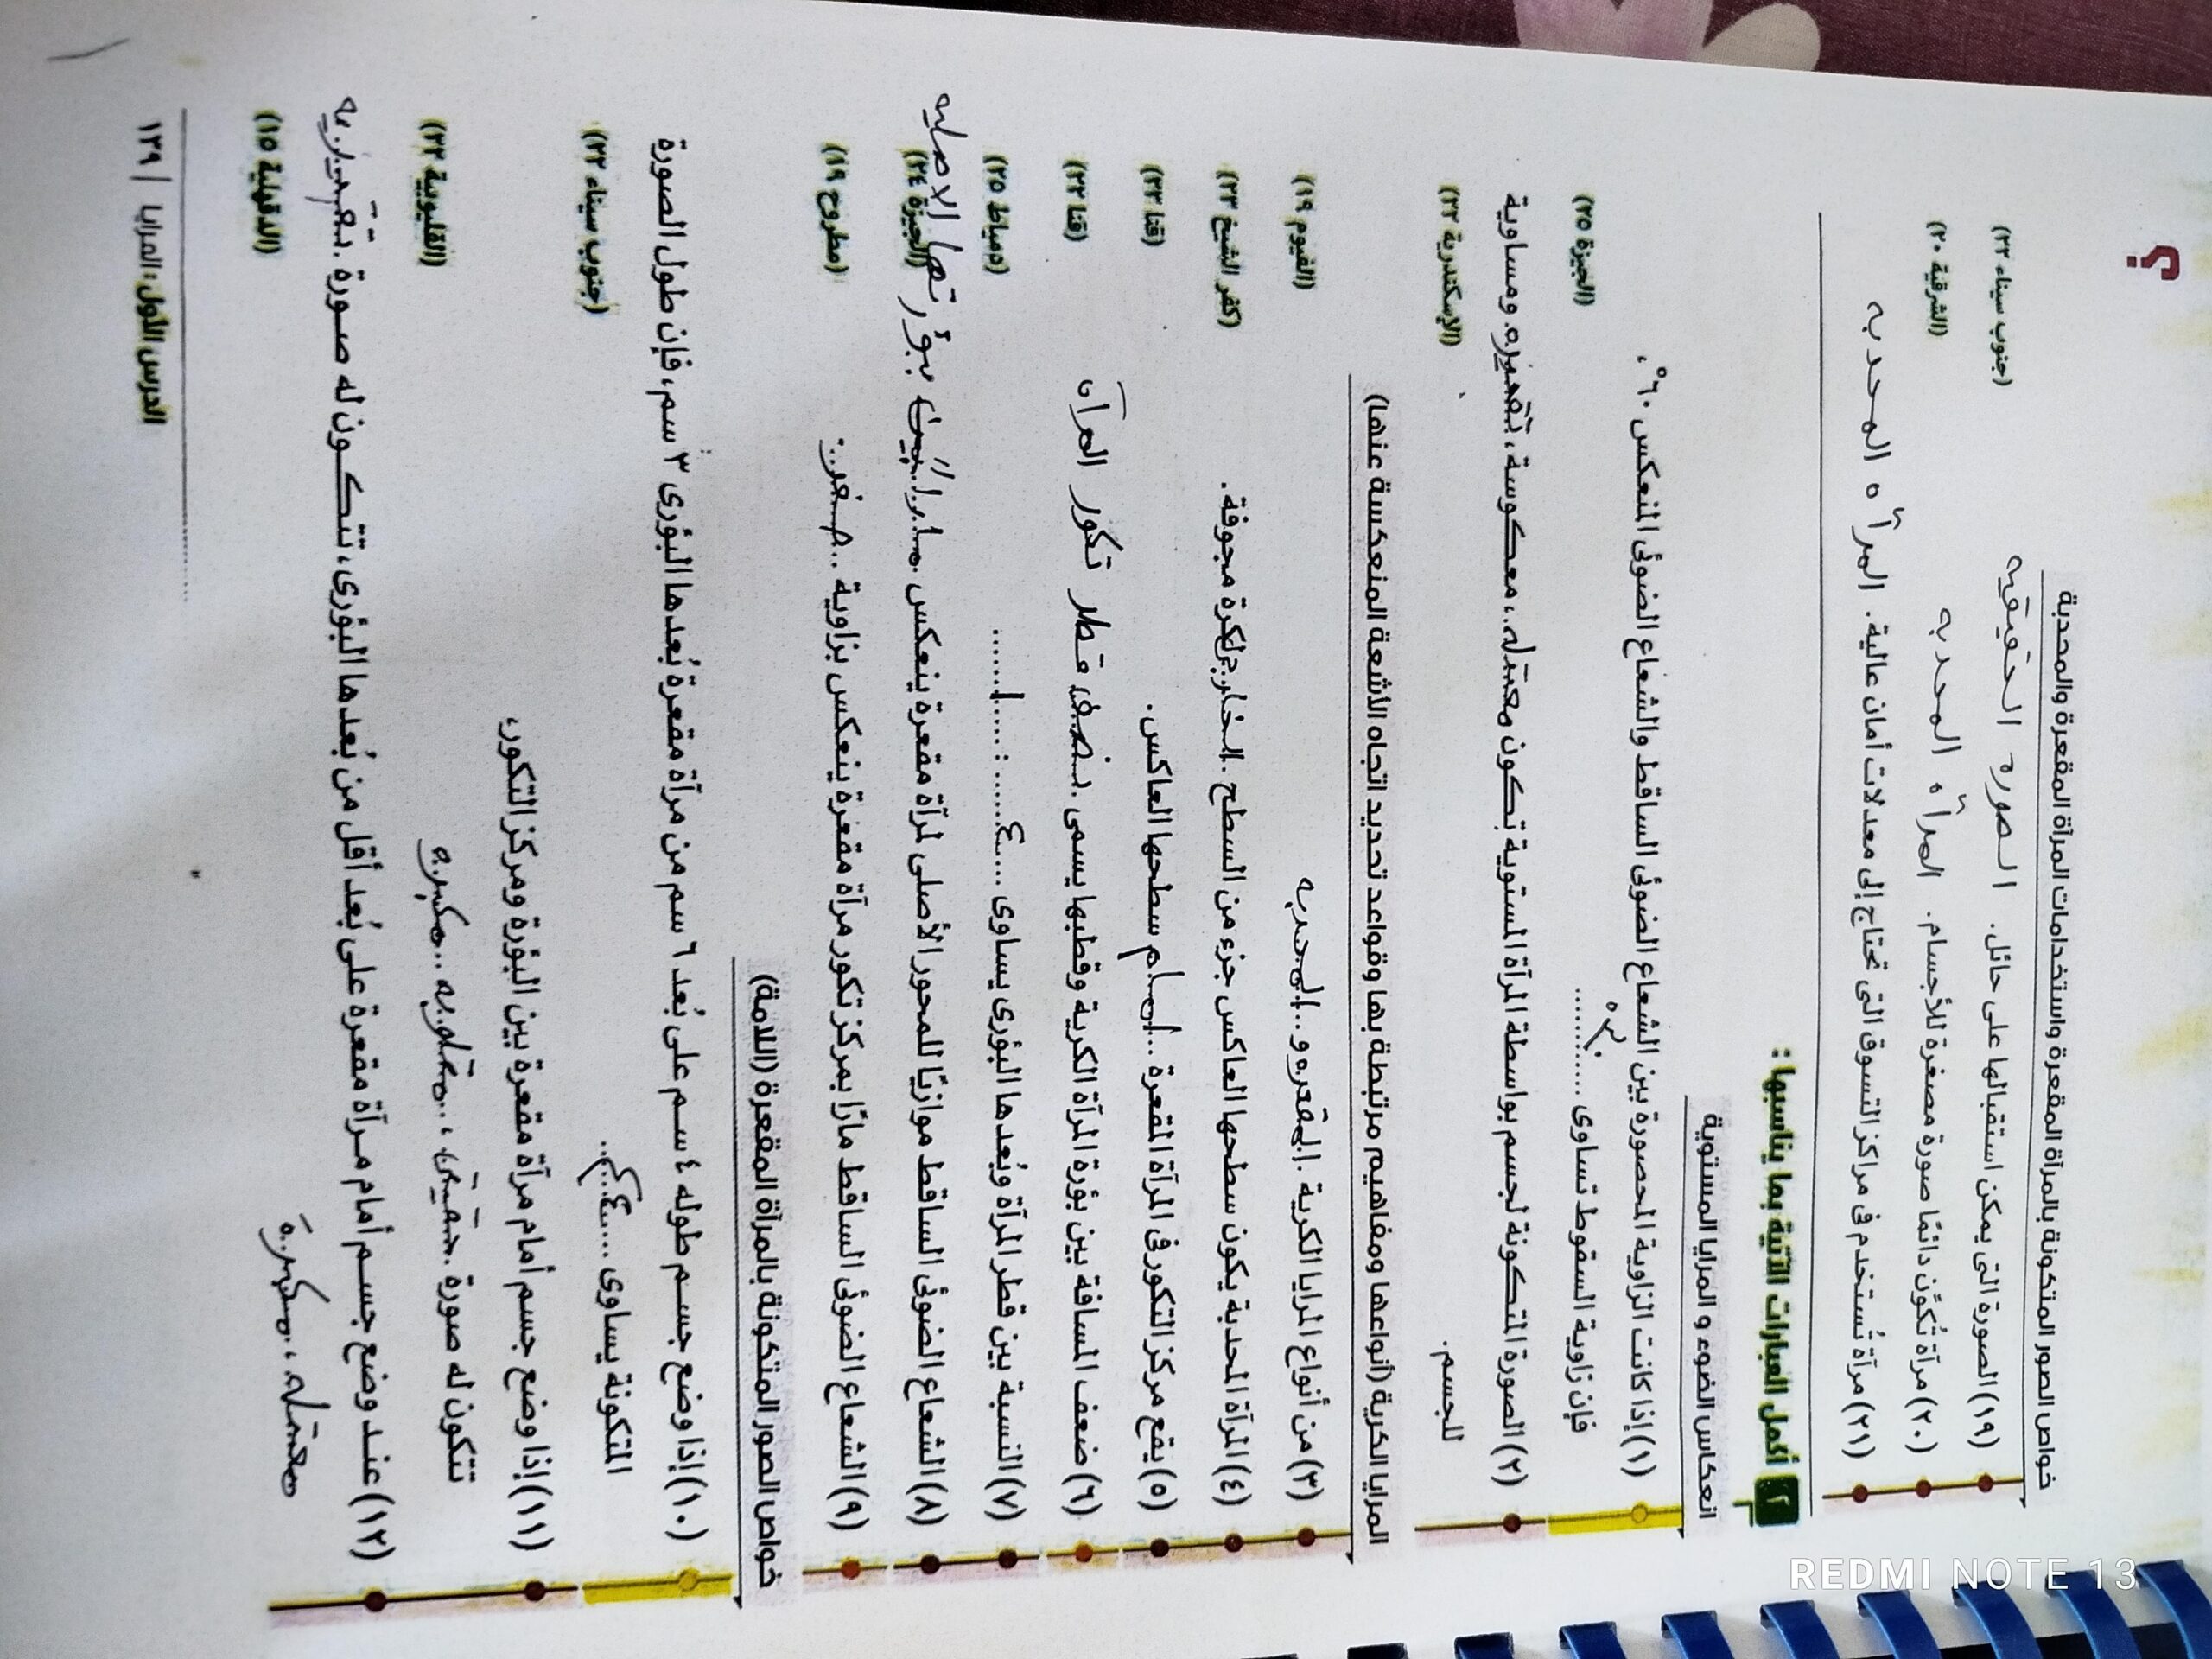 خواص الصور المتكونة بالمرآة المقعرة واستخدامات المرآة المقعرة والمحدبة
(١٩) الصورة التى يمكن استقبالها على حائل. الصوره الحقيقيه (جنوب سيناء ٢٢)
(٢٠) مرآة تُكوِّن دائمًا صورة مصغرة للأجسام. المرآه المحدبه (الشرقية ٢٠)
(٢١) مرآة تُستخدم فى مراكز التسوق التى تحتاج إلى معدلات أمان عالية. المرآه المحدبه
٢ أكمل العبارات الآتية بما يناسبها :
انعكاس الضوء و المرايا المستوية
(١) إذا كانت الزاوية المحصورة بين الشعاع الضوئى الساقط والشعاع الضوئى المنعكس ٦٠°،
فإن زاوية السقوط تساوى .......... ٣٠° (الجيزة ٢٥)
(٢) الصورة المتكونة لجسم بواسطة المرآة المستوية تكون معتدله.. معكوسة، تقديريه. ومساوية
للجسم. (الإسكندرية ٢٢)
المرايا الكرية (أنواعها ومفاهيم مرتبطة بها وقواعد تحديد اتجاه الأشعة المنعكسة عنها)
(٣) من أنواع المرايا الكرية .المقعره و ..المحدبه (الفيوم ١٩)
(٤) المرآة المحدبة يكون سطحها العاكس جزء من السطح .الخارجى لكرة مجوفة. (كفر الشيخ ٢٣)
(٥) يقع مركز التكور فى المرآة المقعرة ..امام سطحها العاكس. (قنا ٢٣)
(٦) ضعف المسافة بين بؤرة المرآة الكرية وقطبها يسمى .نصف قطر تكور المرآه (قنا ٢٢)
(٧) النسبة بين قطر المرآة وبُعدها البؤرى يساوى ....٤...... : ....١...... (دمياط ٢٥)
(٨) الشعاع الضوئى الساقط موازيًا للمحور الأصلى لمرآة مقعرة ينعكس .مارا ببؤرتها الاصليه (الجيزة ٢٤)
(٩) الشعاع الضوئى الساقط مارًا بمركز تكور مرآة مقعرة ينعكس بزاوية ..صفر.. (مطروح ١٩)
خواص الصور المتكونة بالمرآة المقعرة (اللامة)
(١٠) إذا وضع جسم طوله ٤ سم على بُعد ٦ سم من مرآة مقعرة بُعدها البؤرى ٣ سم، فإن طول الصورة
المتكونة يساوى ....٤سم. (جنوب سيناء ٢٢)
(١١) إذا وضع جسم أمام مرآة مقعرة بين البؤرة ومركز التكور،
تتكون له صورة .حقيقيه ، ..مقلوبه ..مكبره (القليوبية ٢٣)
(١٢) عند وضع جسم أمام مرآة مقعرة على بُعد أقل من بُعدها البؤرى، تتكون له صورة .تقديريه
معتدله ، مكبره (الدقهلية ١٥)
الدرس الأول : المرايا | ١٣٩
REDMI NOTE 13